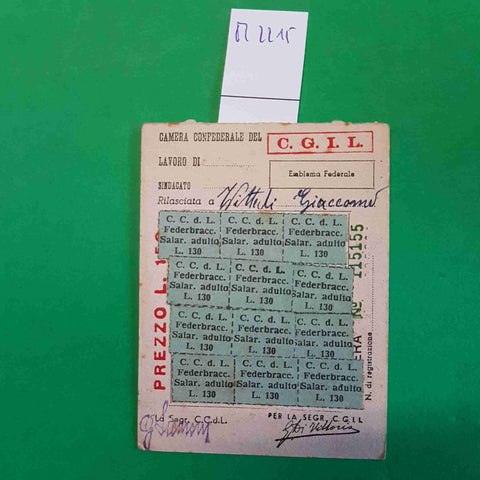 CAMERA CONFEDERALE DEL
C. G. I. L.
LAVORO DI
Emblema Federale
SINDACATO
Rilasciata a Vittuli Giaccomo
C. C. d. L. C. C. d. L. C. C. d. L.
Federbracc. Federbracc. Federbracc.
Salar. adulto Salar. adulto Salar. adulto
L. 130 L. 130 L. 130
C. C. d. L. C. C. d. L. C. C. d. L.
Federbracc. Federbracc. Federbracc.
Salar. adulto Salar. adulto Salar. adulto
L. 130 L. 130 L. 130
C. C. d. L. C. C. d. L. C. C. d. L.
Federbracc. Federbracc. Federbracc.
Salar. adulto Salar. adulto Salar. adulto
L. 130 L. 130 L. 130
C. C. d. L. C. C. d. L. C. C. d. L.
Federbracc. Federbracc. Federbracc.
Salar. adulto Salar. adulto Salar. adulto
L. 130 L. 130 L. 130
PREZZO L.
Nº 115155
N. di registrazione
La Segr. C.C.d.L.
PER LA SEGR. C.G.I.L.
G Di Vittorio